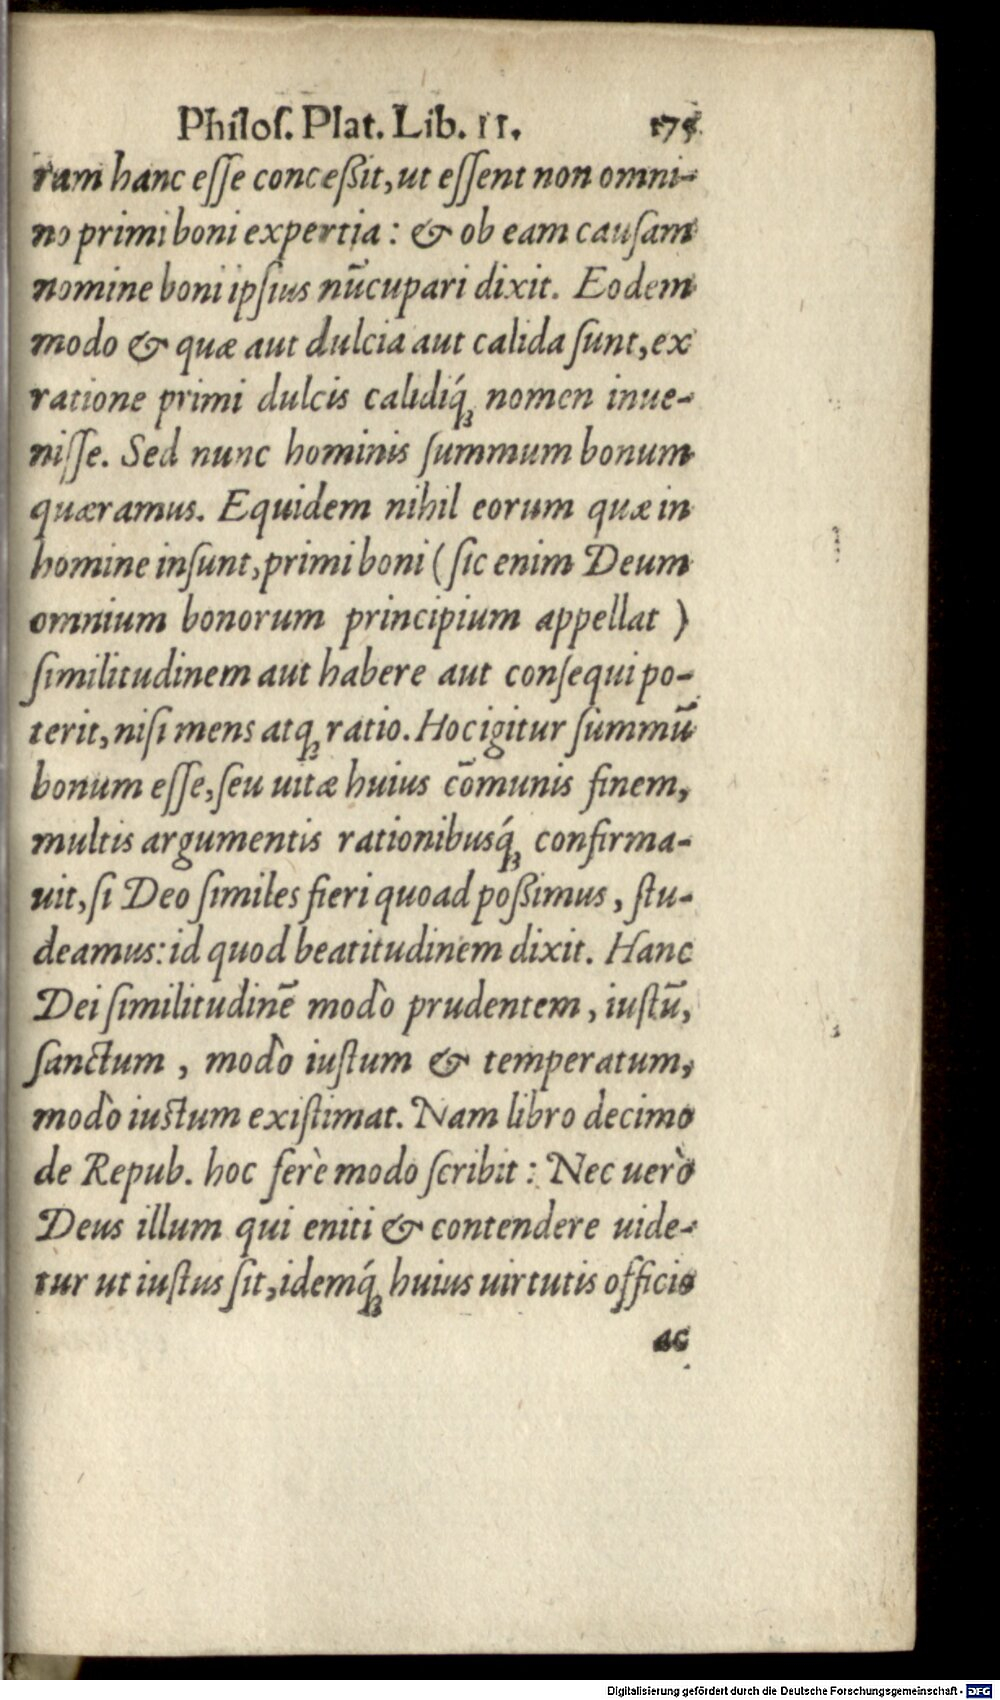 Philoſ. Plat. Lib. II. 175
ram hanc eſſe conceßit, ut eſſent non omni-
no primi boni expertia: & ob eam cauſam
nomine boni ipſius nūcupari dixit. Eodem
modo & quæ aut dulcia aut calida ſunt, ex
ratione primi dulcis calidiq́ꝫ nomen inue-
niſſe. Sed nunc hominis ſummum bonum
quæramus. Equidem nihil eorum quæ in
homine inſunt, primi boni (ſic enim Deum
omnium bonorum principium appellat)
ſimilitudinem aut habere aut conſequi po-
terit, niſi mens atqꝫ ratio. Hoc igitur ſummū
bonum eſſe, ſeu uitæ huius cōmunis finem,
multis argumentis rationibusq́ꝫ confirma-
uit, ſi Deo ſimiles fieri quoad poßimus, ſtu-
deamus: id quod beatitudinem dixit. Hanc
Dei ſimilitudinē modò prudentem, iuſtū,
ſanctum, modò iuſtum & temperatum,
modò iuſtum exiſtimat. Nam libro decimo
de Repub. hoc ferè modo ſcribit: Nec uerò
Deus illum qui eniti & contendere uide-
tur ut iuſtus ſit, idemq́ꝫ huius uirtutis officio
ac
Digitalisierung gefördert durch die Deutsche Forschungsgemeinschaft - DFG